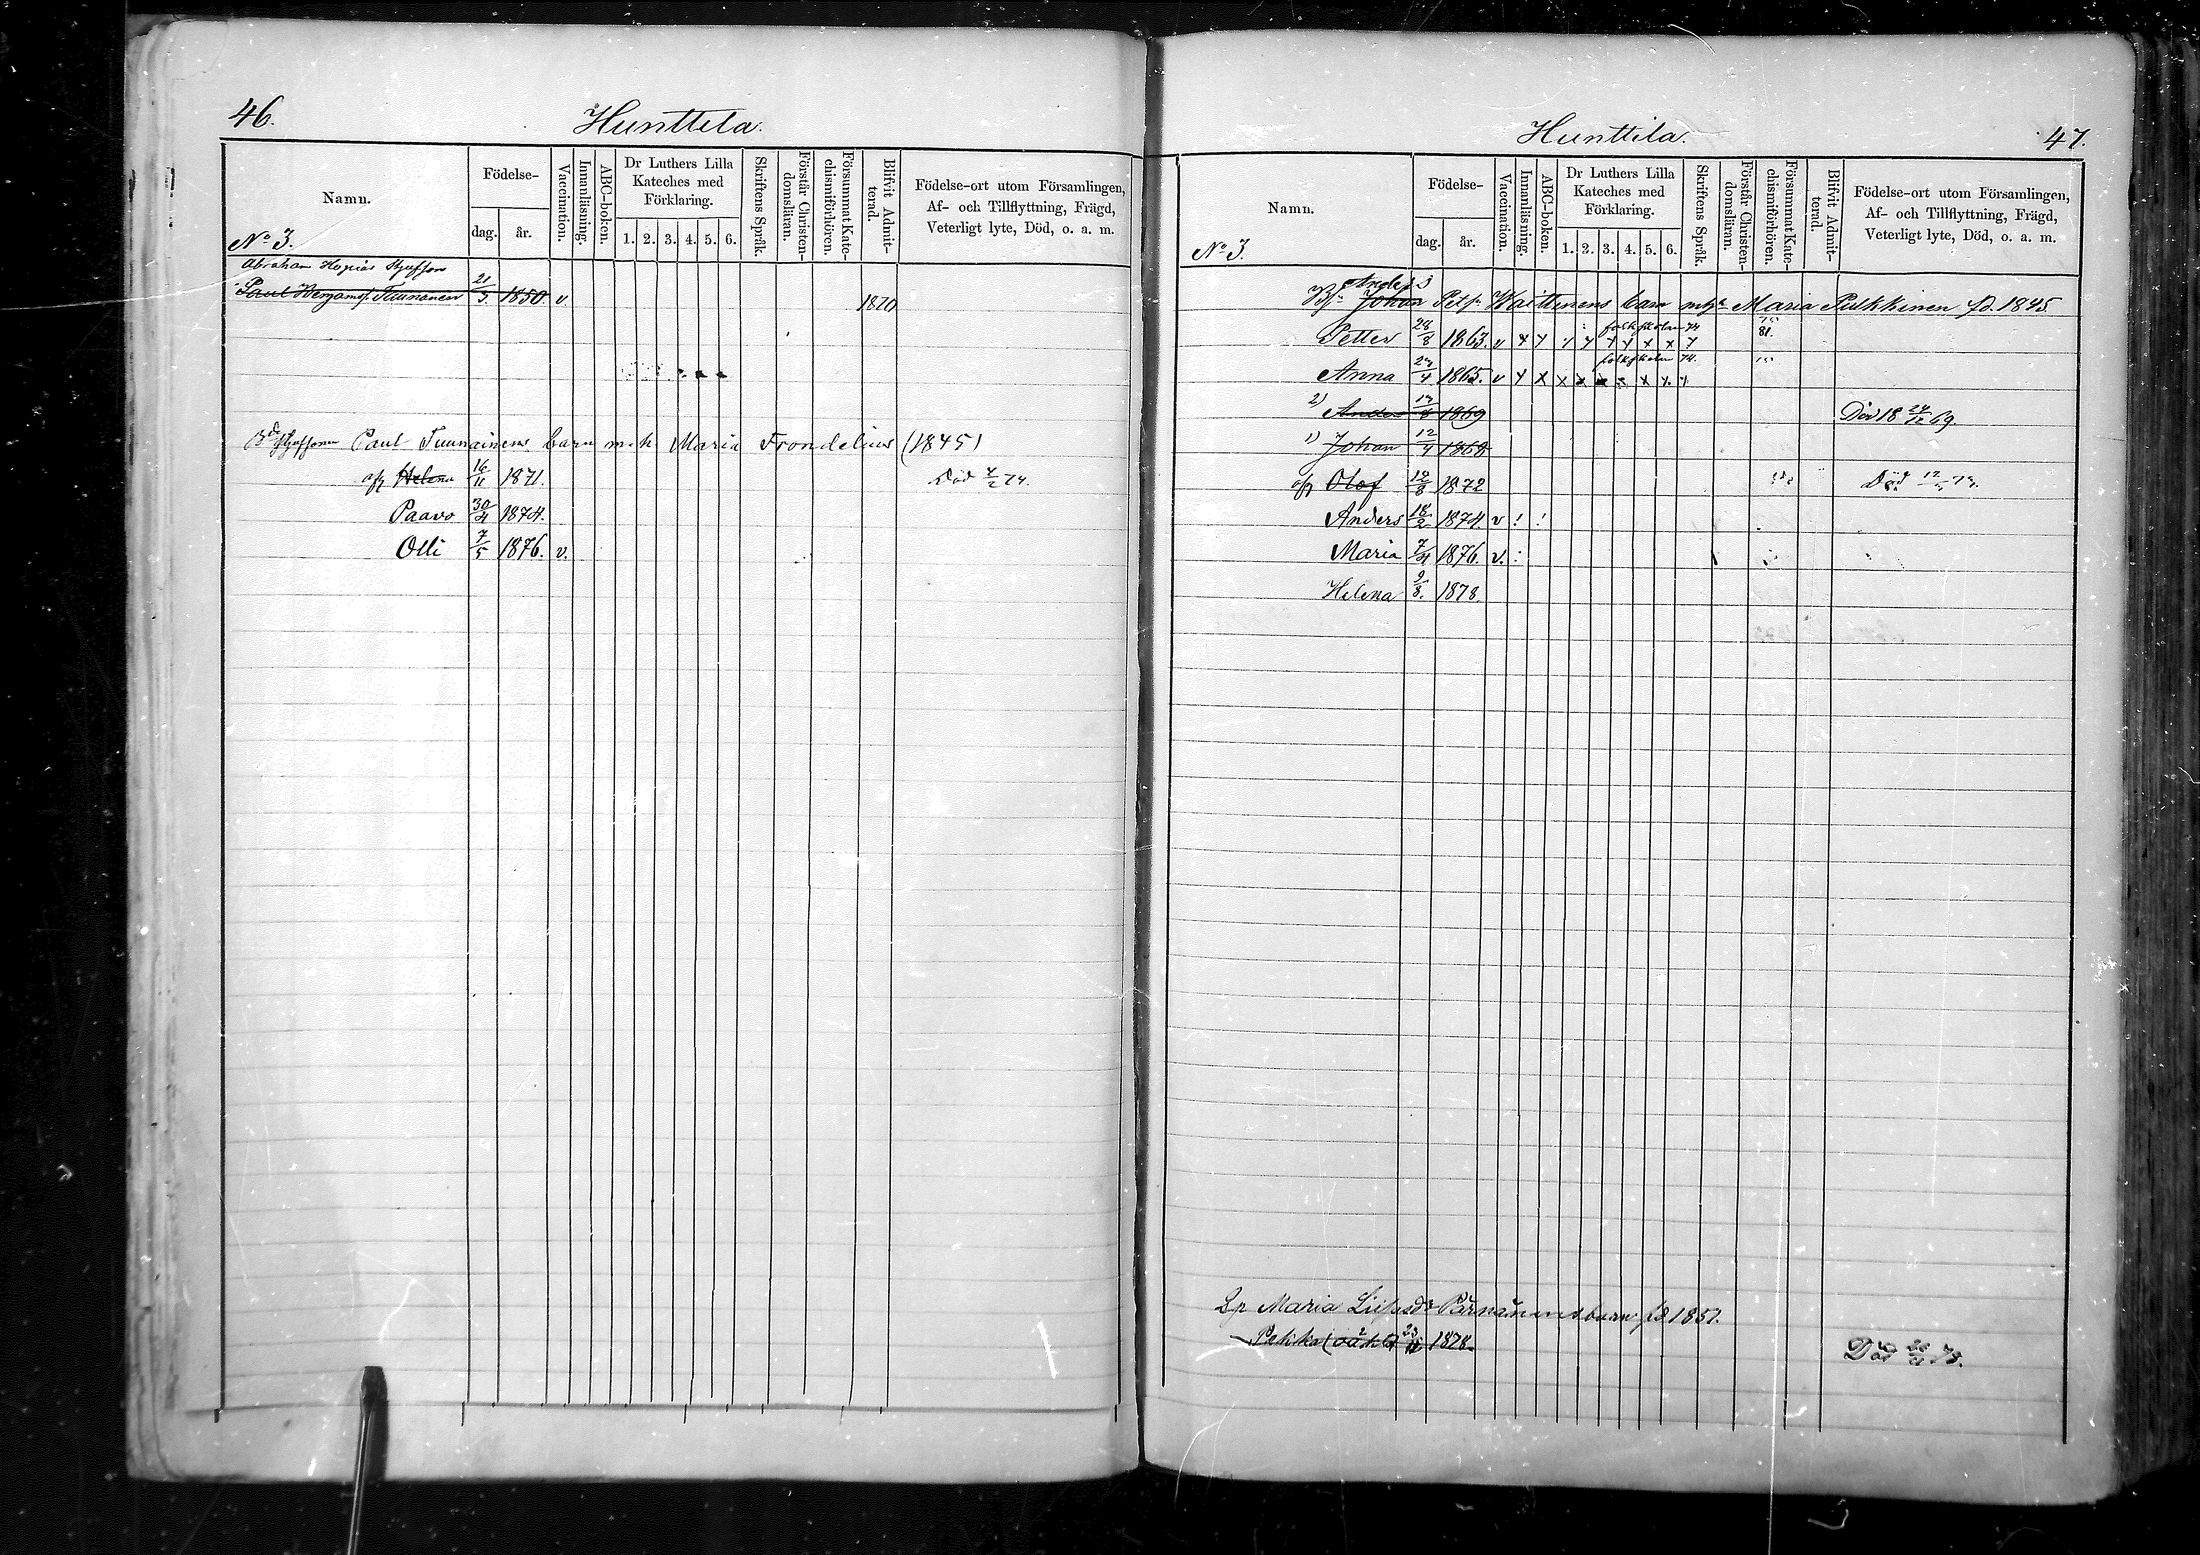 46.
Hunttila.
Namn.
Födelse-
dag. år.
Vaccination.
Innanläsning.
ABC-boken.
Dr Luthers Lilla
Kateches med
Förklaring.
1. 2. 3. 4. 5. 6.
Skriftens Språk.
Förstår Christen-
domsläran.
Försummat Kate-
chismiförhören.
Blifvit Admit-
terad.
Födelse-ort utom Församlingen,
Af- och Tillflyttning, Frägd,
Veterligt lyte, Död, o. a. m.
No 3.
Abraham
Paul Benjamsf. Tuunanen 21/3 1850 v 1870
Paul Tuunainens barn m. h. Maria Frondelius (1845)
Helena 16/11 1871. Död 4/2 74.
Paavo 30/4 1874.
Olli 7/5 1876. v.
Hunttila.
47.
Namn.
Födelse-
dag. år.
Vaccination.
Innanläsning.
ABC-boken.
Dr Luthers Lilla
Kateches med
Förklaring.
1. 2. 3. 4. 5. 6.
Skriftens Språk.
Förstår Christen-
domsläran.
Försummat Kate-
chismiförhören.
Blifvit Admit-
terad.
Födelse-ort utom Församlingen,
Af- och Tillflyttning, Frägd,
Veterligt lyte, Död, o. a. m.
No 3.
Anders
Johan Waittinens barn Maria Pulkkinen fd. 1845
Petter 28/8 1863. v x x x x x x x x x 81.
Anna 1865. v x x x x x x x x
2) Anders 1869 Död 18 69.
1) Johan 12/4 1868
Olof 12/8 1872 Död
Anders 18/2 1874. v ! !
Maria 7/4 1876. v. :
Helena 9/8. 1878.
Maria fd. 1851.
Pekka 1878. Död 78.